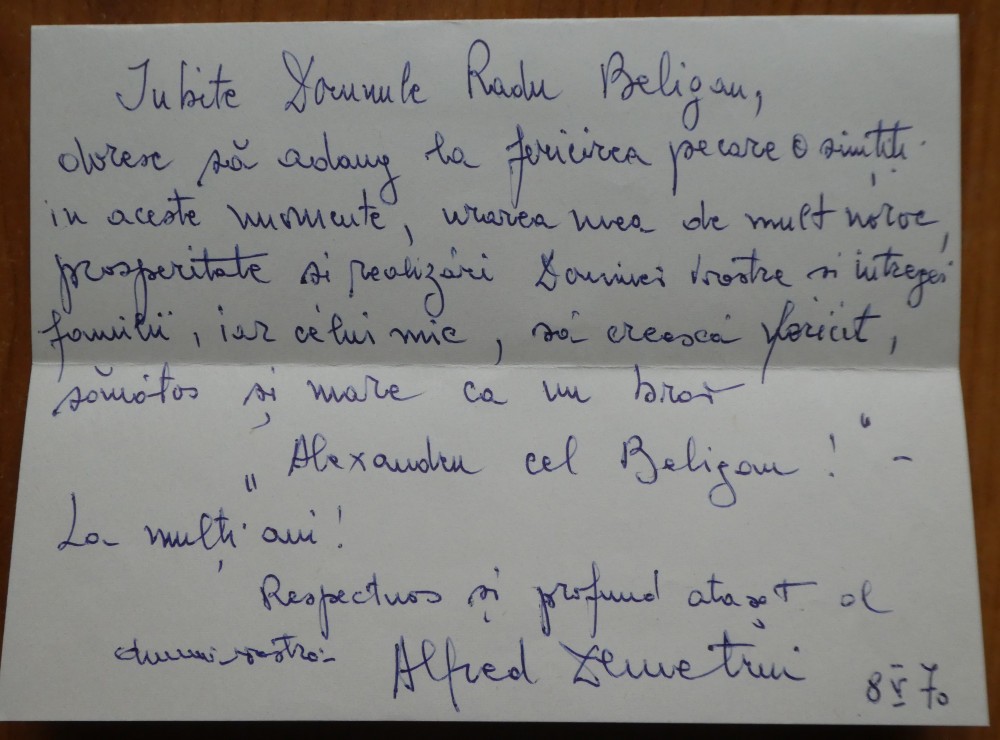 Iubite Domnule Radu Beligan,
doresc să adaug la fericirea pecare o simțiți
in aceste momente, urarea mea de mult noroc,
prosperitate si realizări Domniei Vostre si intregei
familii, iar celui mic, să crească fericit,
sănătos și mare ca un brad
„Alexandru cel Beligan!" -
La mulți ani!
Respectuos și profund atașat al
dumnivostră
Alfred Demetriu
8 V 70